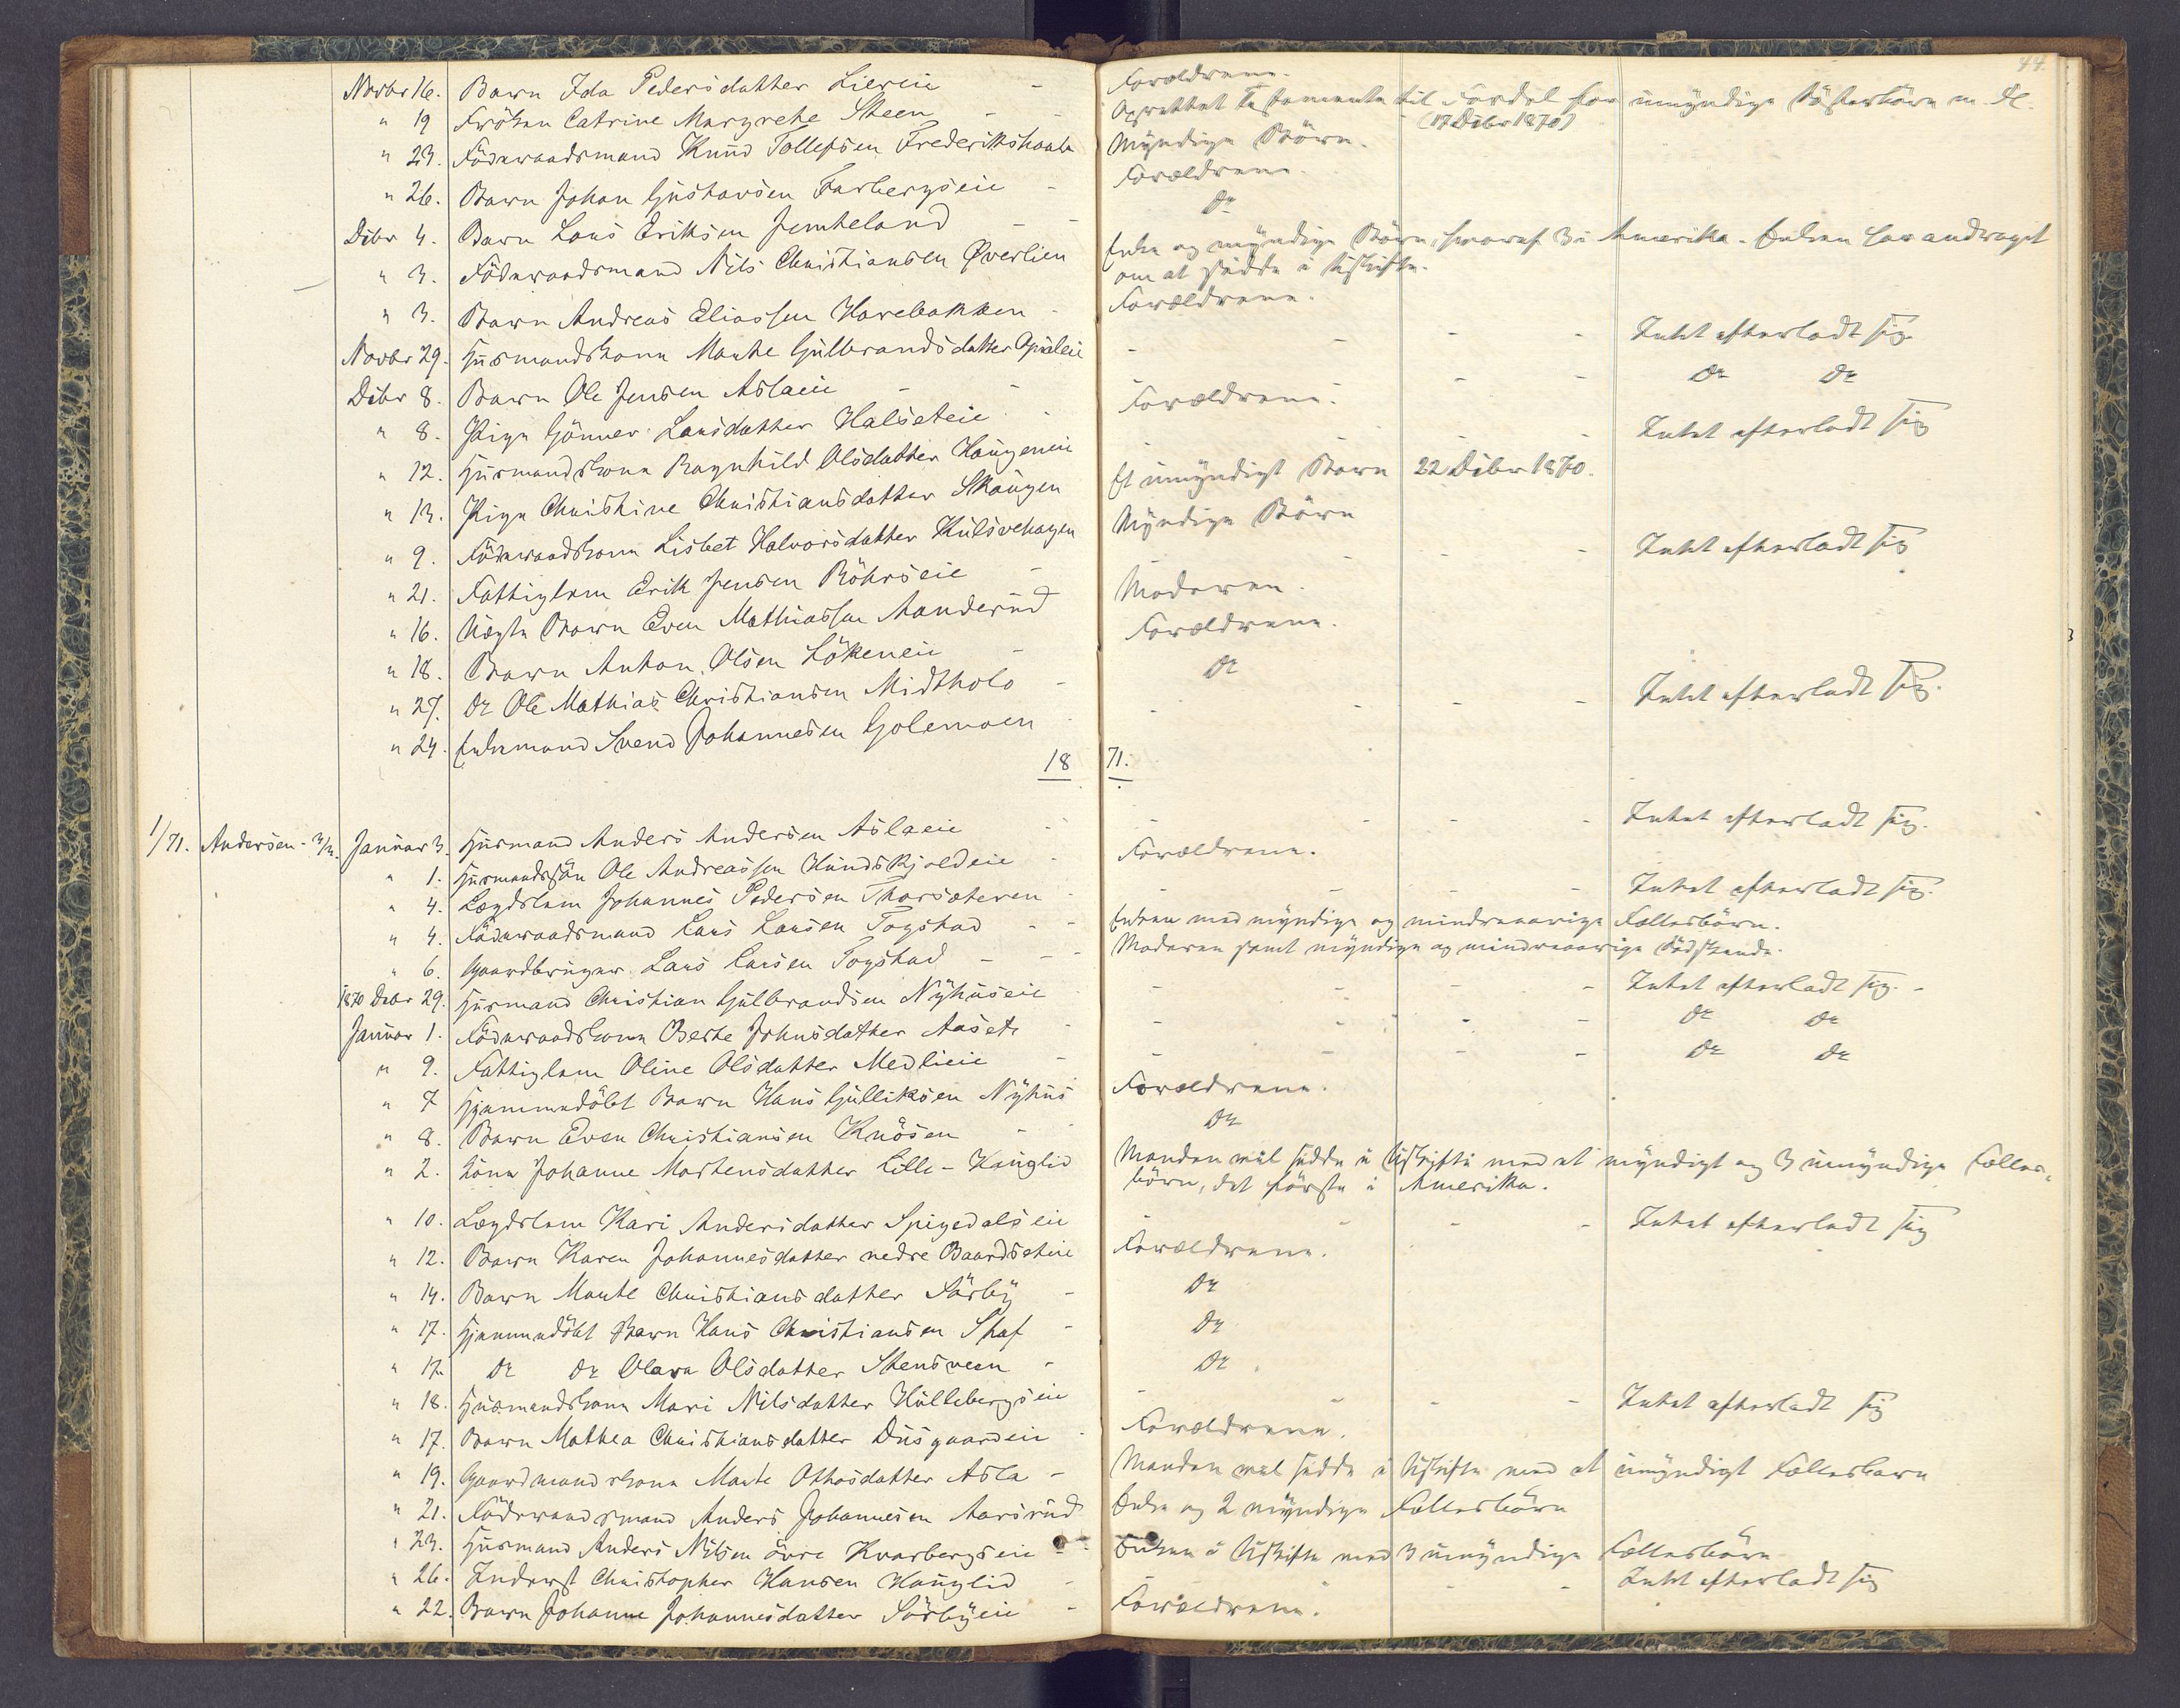 44.
Novbr 16. Barn Ida Pedersdatter Liereie - Forældrene.
" 19 Frøken Catrine Margrethe Steen - - Oprettet Testamente til Fordel for umyndige Søsterbørn m. Fl. (17 Dcbr 1870)
" 23. Føderaadsmand Knud Tollefsen Frederikshaab Myndige Børn.
" 26. Barn Johan Gustavsen Farbergseie - Forældrene.
Dcbr 4. Barn Lars Eriksen Jemteland - - Do
" 3. Føderaadsmand Nils Christiansen Øverlien Enke og myndige Børn, hvoraf 3 i Amerika. Enken har andraget
om at sidde i Uskifte.
" 3. Barn Andreas Eliassen Harebakken - Forældrene.
Novbr 29. Husmandskone Marthe Gulbrandsdatter - - - - Intet efterladt sig.
Dcbr 8. Barn Ole Jensen Aslaeie - - Forældrene. - - Do Do
" 8. Pige Gønner Larsdatter Halseteie - - - - Intet efterladt sig
" 12. Husmandskone Ragnhild Olsdatter Haugeneie Et umyndigt Barn 22 Dcbr 1870.
" 13. Pige Christine Christiansdatter Skaugen Myndige Børn
" 9. Føderaadskone Lisbet Halvorsdatter Kulsvehagen - - - Intet efterladt sig
" 21. Fattiglem Erik Jensen Röhrseie - Moderen.
" 16. Uægte Barn Even Mathiassen Aanderud Forældrene.
" 18. Barn Anton Olsen Lökeneie - Do
" 27. Do Ole Mathias Christiansen Midtholo - - - - - Intet efterladt sig.
" 24. Enkemand Svend Johannesen Golemoen
1871.
1/71. Andersen - 3/2. Januar 3. Husmand Anders Andersen Aslaeie - - - - - Intet efterladt sig.
" 1. Husmandssøn Ole Andreassen Hundskjoldeie - Forældrene.
" 4. Lægdslem Johannes Pedersen Thorsæteren - - - - - Intet efterladt sig.
" 4. Føderaadsmand Lars Larsen Togstad - - Enken med myndige og mindreaarige Fællesbørn.
" 6. Gaardbruger Lars Larsen Togstad - - - Moderen samt myndige og mindreaarige Södskende.
1870 Dcbr 29. Husmand Christian Gulbrandsen Nyhuseie - - - - Intet efterladt sig. -
Januar 1. Føderaadskone Berte Johnsdatter Aasete - - - - - Do Do
" 9. Fattiglem Oline Olsdatter Medlieie - - - - - Do Do
" 7 Hjemmedøbt Barn Hans Gulliksen Nyhus Forældrene.
" 8. Barn Even Christiansen Knösen - - Do
" 2. Kone Johanne Mortensdatter Lille-Hauglid Manden vil sidde i Uskifte med et myndigt og 3 umyndige Fælles-
børn, det første i Amerika.
" 10. Lægdslem Kari Andersdatter Spigedalseie - - - - Intet efterladt sig
" 12. Barn Karen Johannesdatter nedre Baardseteie Forældrene.
" 14. Barn Marthe Christiansdatter Sörby - Do
" 17. Hjemmedøbt Barn Hans Christiansen Skaf - Do
" 17. Do Do Olava Olsdatter Stensveen - Do.
" 18. Husmandskone Mari Nilsdatter Hullebergseie - - - - Intet efterladt sig
" 17. Barn Mathea Christiansdatter Dusgaardeie - Forældrene.
" 19. Gaardmandskone Marte Ottosdatter Asla - Manden vil sidde i Uskifte med et umyndigt Fællesbarn
" 21. Føderaadsmand Anders Johannesen Aarsrud Enke og 2 myndige Fællesbørn
" 23. Husmand Anders Nilsen övre Kvarbergseie - Enken i Uskifte med 3 umyndige Fællesbørn
" 26. Inderst Christopher Hansen Hauglid - - - - Intet efterladt sig
" 22. Barn Johanne Johannesdatter Sörbyeie - Forældrene.